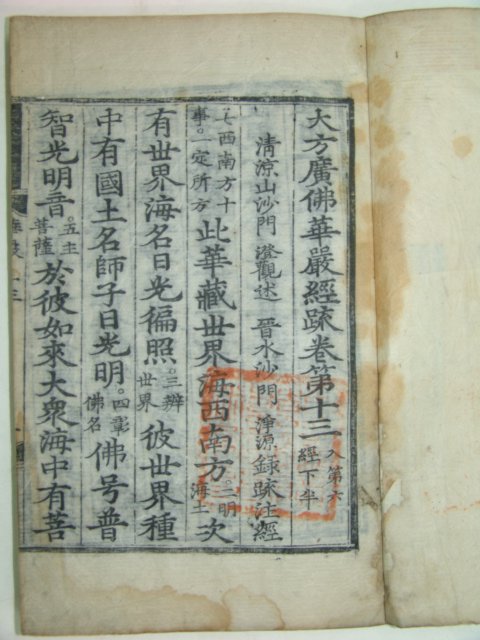 大方廣佛華嚴經䟽卷第十三 入第六經下半
清涼山沙門 澄觀述 晉水沙門 淨源錄䟽注經
七西南方十事。一定所方 此華藏世界海西南方。二明海土 次
有世界海名日光徧照。三辨世界 彼世界種
中有國土名師子日光明。四彰佛名 佛号普
智光明音。五主菩薩 於彼如來大衆海中有菩